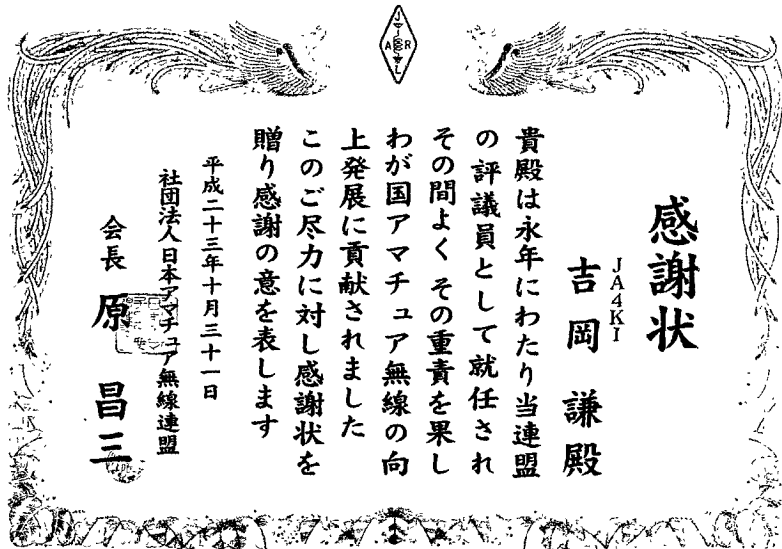 JARL
感謝状
JA4KI
吉岡 謙殿
貴殿は永年にわたり当連盟
の評議員として就任され
その間よく その重責を果し
わが国アマチュア無線の向
上発展に貢献されました
このご尽力に対し感謝状を
贈り感謝の意を表します
平成二十三年十月三十一日
社団法人日本アマチュア無線連盟
会長 原 昌三